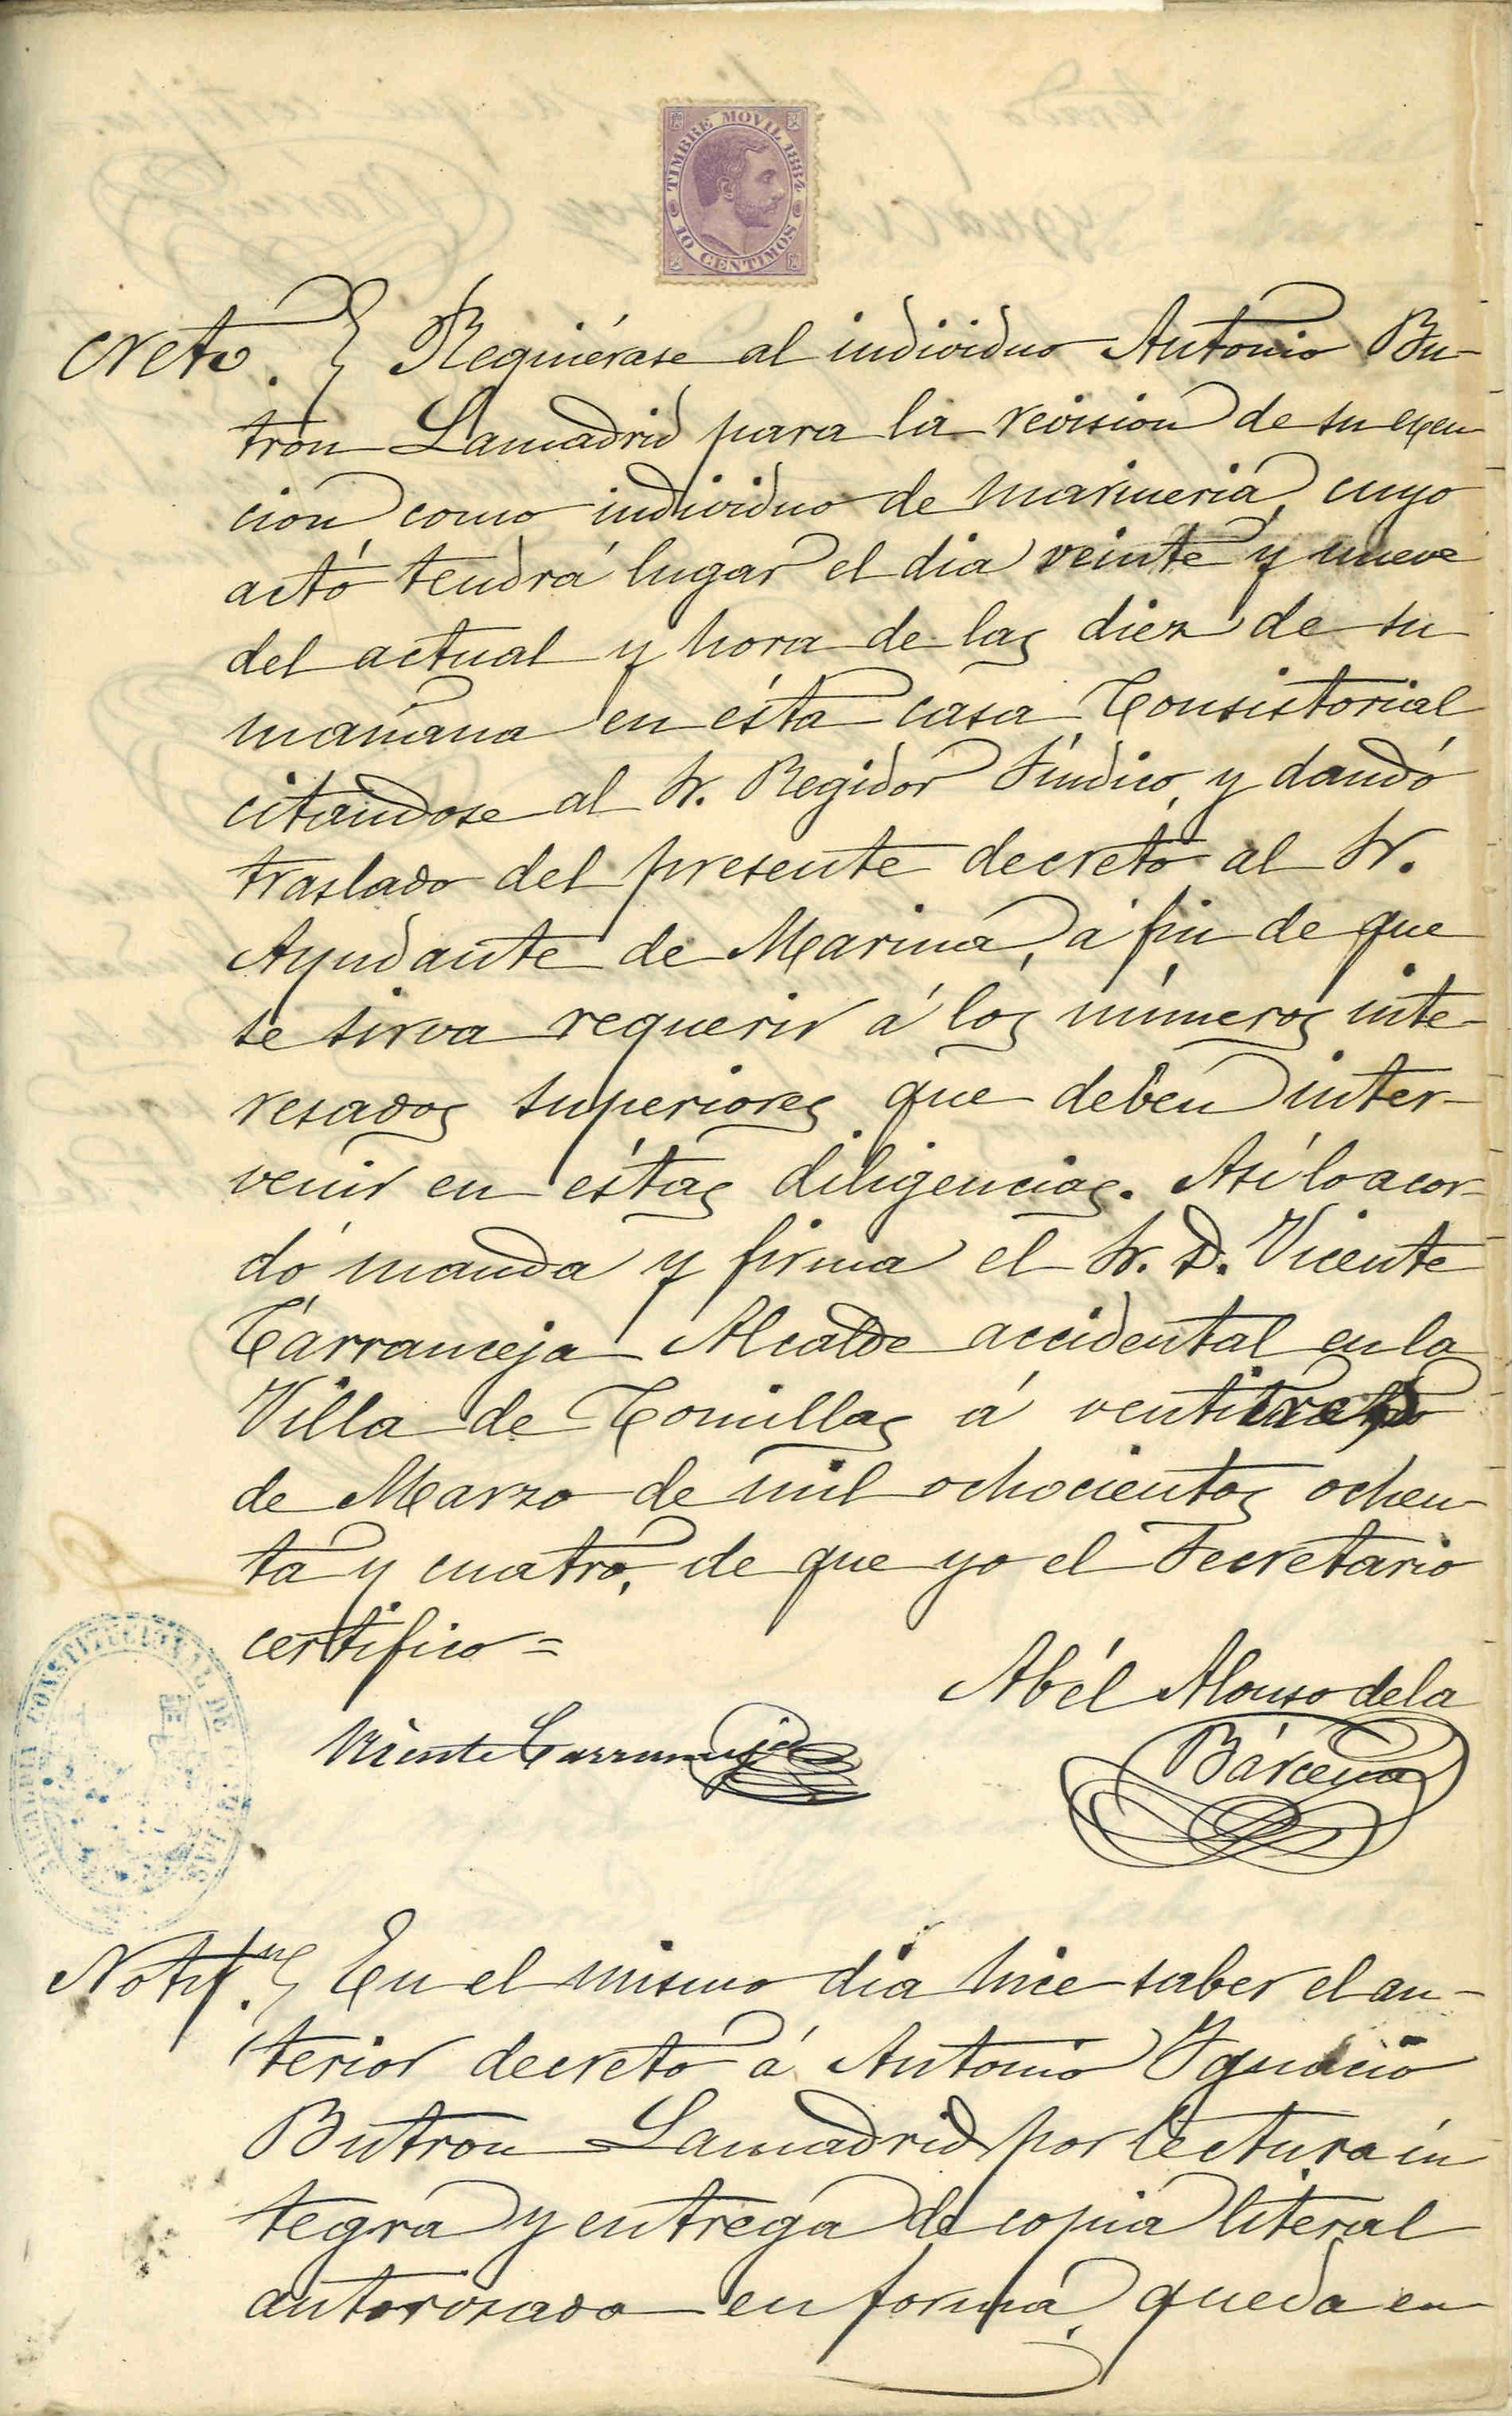 TIMBRE MOVIL 1884
10 CENTIMOS
creto. Requiérase al individuo Antonio Bu-
tron Lamadrid para la revision de su exen
cion como individuo de marineria, cuyo
acto tendrá lugar el dia veinte y nueve
del actual y hora de las diez de su
mañana en ésta casa Consistorial
citandose al Sr. Regidor Síndico, y dando
traslado del presente decreto al Sr.
Ayudante de Marina, á fin de que
se sirva requerir á los números inte-
resados superiores que deben inter-
venir en éstas diligencias. Asi lo acor-
dó manda y firma el Sr. D. Vicente
Carranceja Alcalde accidental en la
Villa de Comillas á ventitres
de Marzo de mil ochocientos ochen-
ta y cuatro, de que yo el Secretario
certifico =
Abél Alonso de la
Bárcena
Vicente Carranceja
ALCALDIA CONSTITUCIONAL DE COMILLAS
Notifn. En el mismo dia hice saber el an-
terior decreto á Antonio Ygnacio
Butron Lamadrid por lectura ín
tegra y entrega de copia literal
autorizada en forma, queda en